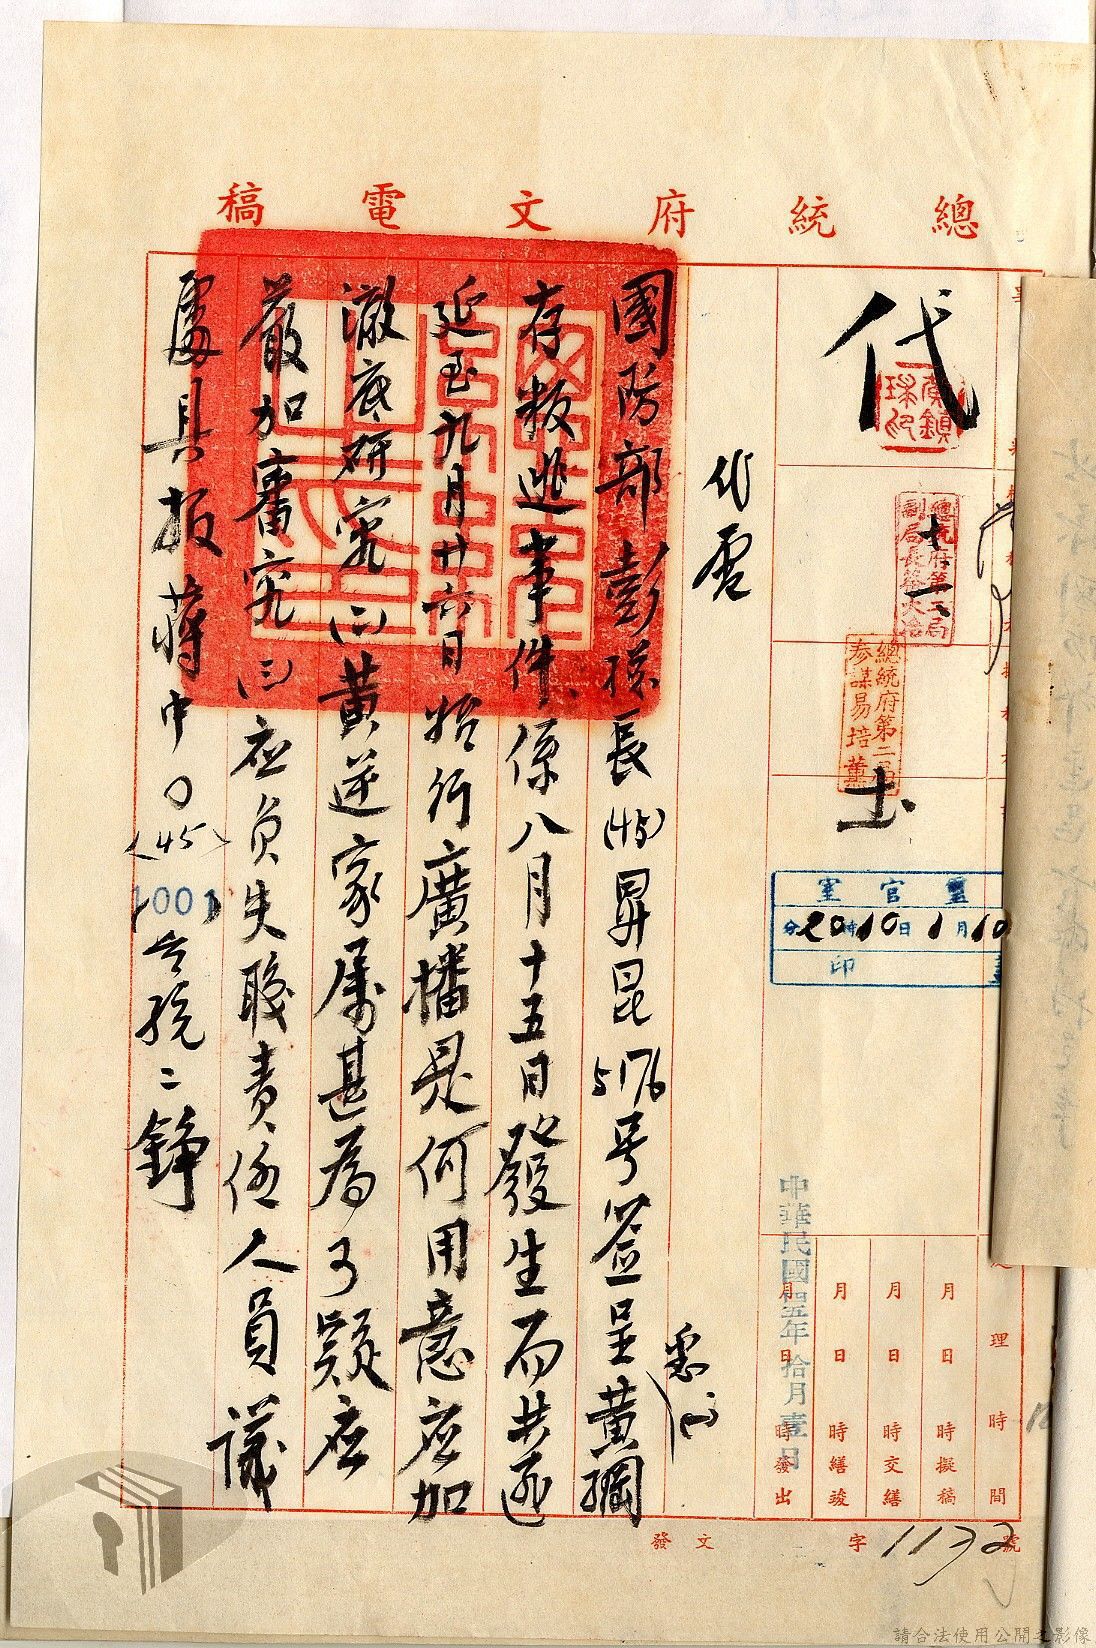 總統府文電稿
代
黃鎮球印
總統府第二局副局長
總統府第二局參謀易培薰
監官室
10月1日10時20分
印
代電
國防部彭次長(45)昇昆5176号签呈黃綱
存叛逃事件係八月十五日發生而共匪
延至九月廿六日始行廣播是何用意应加
澈底研究(二)黃逆家屬甚為可疑应
嚴加審究(三)应負失職責任人員議
處具报蔣中〇
(45)
1001
台統二錚
理時間
月日時擬稿
月日時交繕
月日時繕竣
月日時發出
中華民國四十五年拾月壹日
發文字1132號
請合法使用公開之影像